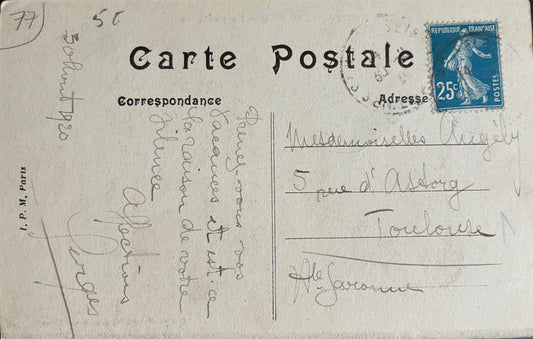 77
5€
Carte Postale
Correspondance
Adresse
RÉPUBLIQUE FRANÇAISE
25c
POSTES
30 Août 1920
Prenez-vous vos
vacances et est-ce
la raison de votre
silence
Affections
Mesdemoiselles
5 rue d'Astorg
Toulouse
Hte Garonne
I. P. M, Paris